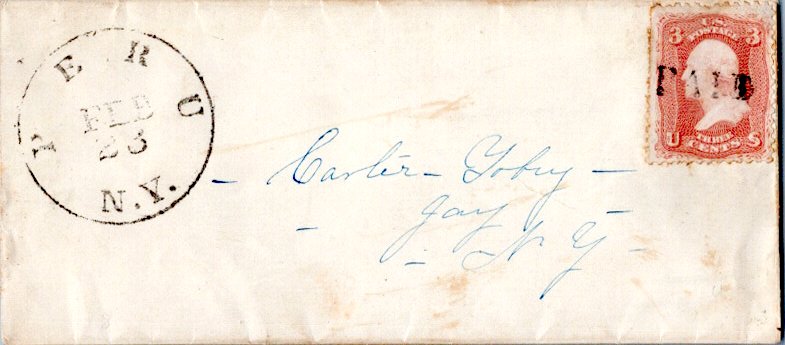 PERU
FEB
23
N.Y.
U.S.
POSTAGE
3 3
PAID
U S
THREE
CENTS
Carter Tobey
Jay
N Y